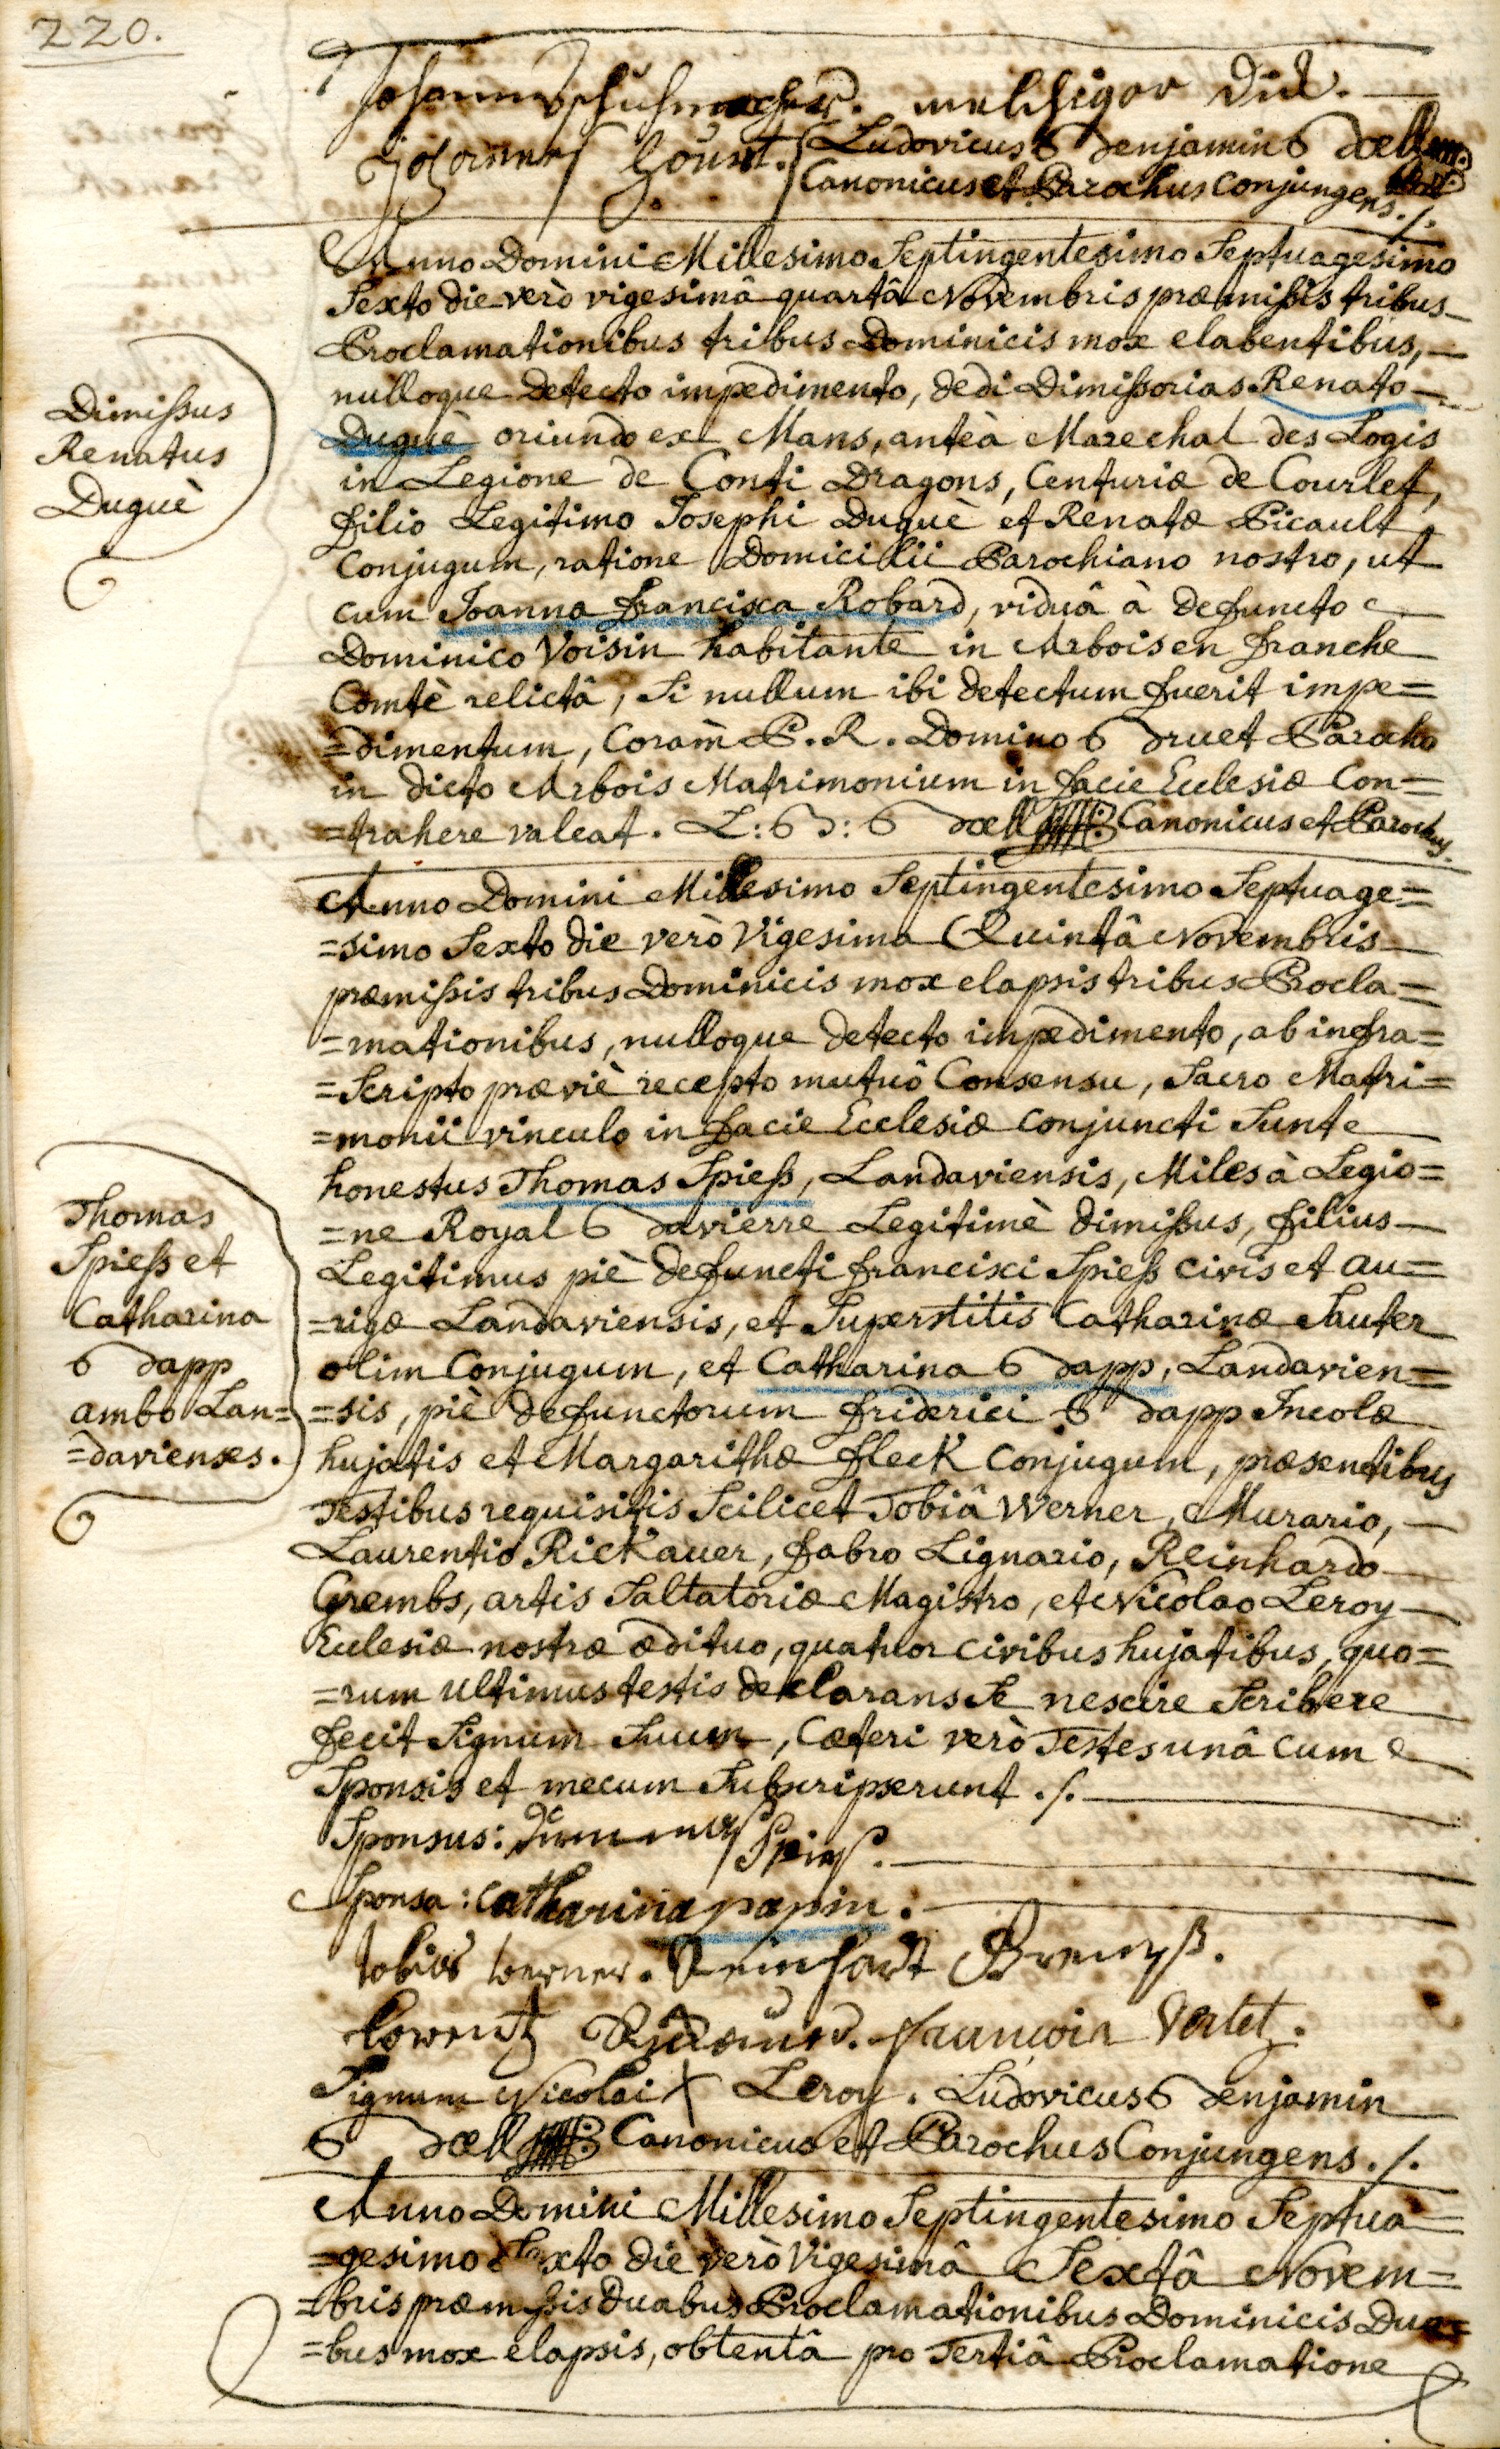 220.
Johannes Schuhmacher. melchigor Did.
Johannes Ludovicus Benjamin Bæll
Canonicus et Parochus conjungens ./.
Anno Domini Millesimo Septingentesimo Septuagesimo
Sexto die verò vigesimâ quartâ Novembris præmissis tribus
Proclamationibus tribus Dominicis mox elabentibus,
nulloque detecto impedimento, dedi Dimissorias Renato
Duguè oriundo ex Mans, anteà Marechal des Logis
in Legione de Conti Dragons, Centuriæ de Courlet,
filio Legitimo Josephi Duguè et Renatæ Picault
Conjugum, ratione Domicilii Parochiano nostro, ut
cum Joanna francisca Robard, viduâ à defuncto
Dominico Voisin habitante in Arbois en franche
Comtè relictâ, Si nullum ibi detectum fuerit impe=
=dimentum, Coram P. R. Domino Bruet Parocho
in dicto Arbois Matrimonium in facie Ecclesiæ Con=
=trahere valeat. L: B: Bæll Canonicus et Parochus.
Dimissus
Renatus
Duguè
Anno Domini Millesimo Septingentesimo Septuage=
=simo Sexto die verò Vigesima Quintâ Novembris
præmissis tribus Dominicis mox elapsis tribus Procla=
=mationibus, nulloque detecto impedimento, ab infra=
=Scripto præviè recepto mutuô Consensu, Sacro Matri=
=monii vinculo in facie Ecclesiæ conjuncti Sunt
honestus Thomas Spieß, Landaviensis, Miles à Legio=
=ne Royal Bavierre Legitimè dimissus, filius
Legitimus piè defuncti francisci Spieß civis et au=
=rigæ Landaviensis, et Superstitis Catharinæ Sauter
olim Conjugum, et Catharina Bapp, Landavien=
=sis, piè defunctorum friderici Bapp Incolæ
hujatis et Margarithæ fleck conjugum, præsentibus
Testibus requisitis Scilicet Tobiâ Werner, Murario,
Laurentio Rickauer, fabro Lignario, Reinhardo
Grembs, artis Saltatoriæ Magistro, et Nicolao Leroy
Ecclesiæ nostræ ædituo, quatuor civibus hujatibus, quo=
=rum ultimus testis declarans Se nescire Scribere
fecit Signum Suum, Cæteri verò Testes unâ cum
Sponsis et mecum Subscripserunt ./.
Thomas
Spieß et
Catharina
Bapp
ambo Lan=
=davienses.
Sponsus: Spieß.
Sponsa: Catharina papin.
tobias werner. Reinhardt
lorentz francoia Vertet.
Signum Nicolai X Leroy. Ludovicus Benjamin
Bæll Canonicus et Parochus Conjungens ./.
Anno Domini Millesimo Septingentesimo Septua=
=gesimo Sexto die verò Vigesimâ Sextâ Novem=
=bris præmissis duabus Proclamationibus Dominicis Dua=
=bus mox elapsis, obtentâ pro Tertiâ Proclamatione